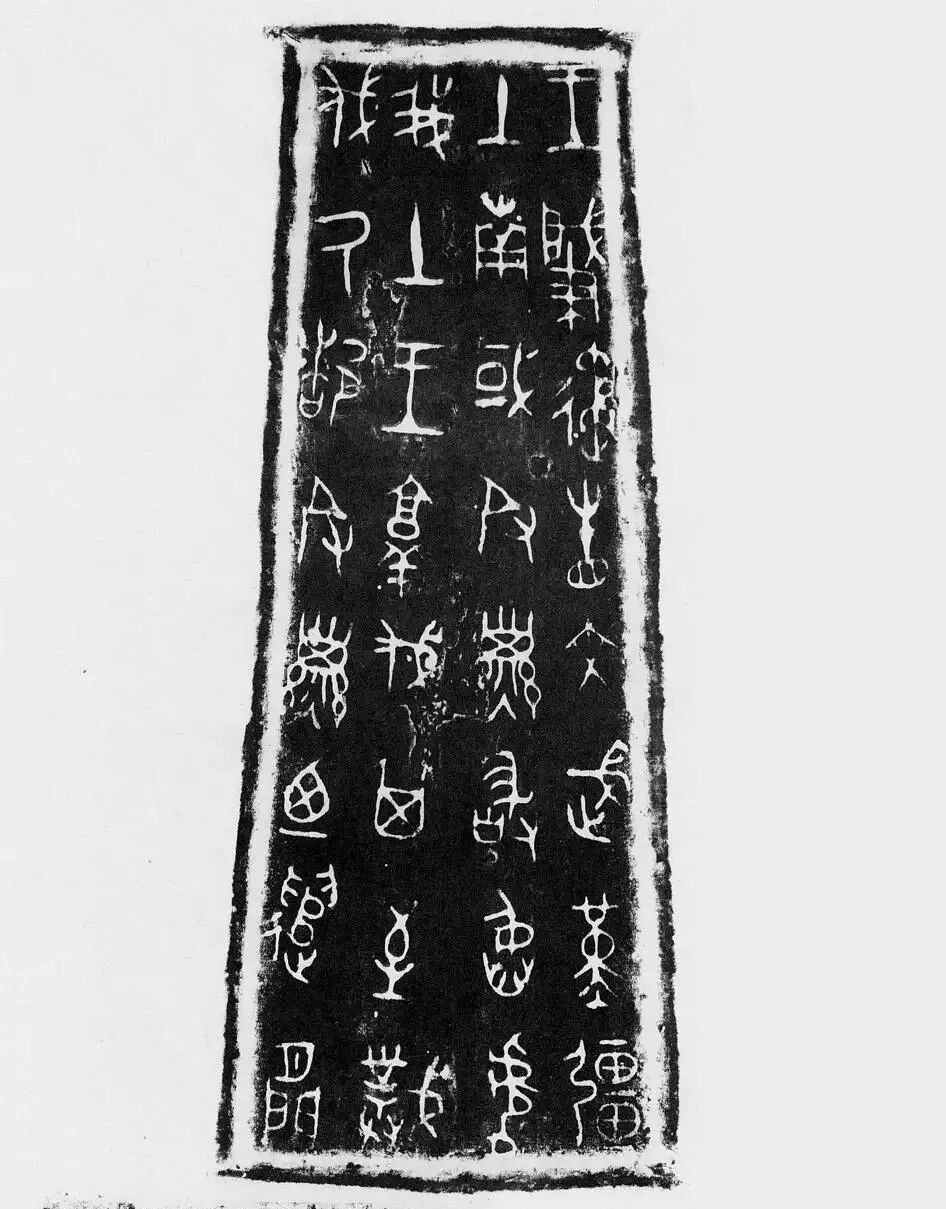 王肇遹省文武堇彊
土南或𠬝孳敢臽處
我土王𦎫伐其至𢿢
伐氒都𠬝孳迺遣閒